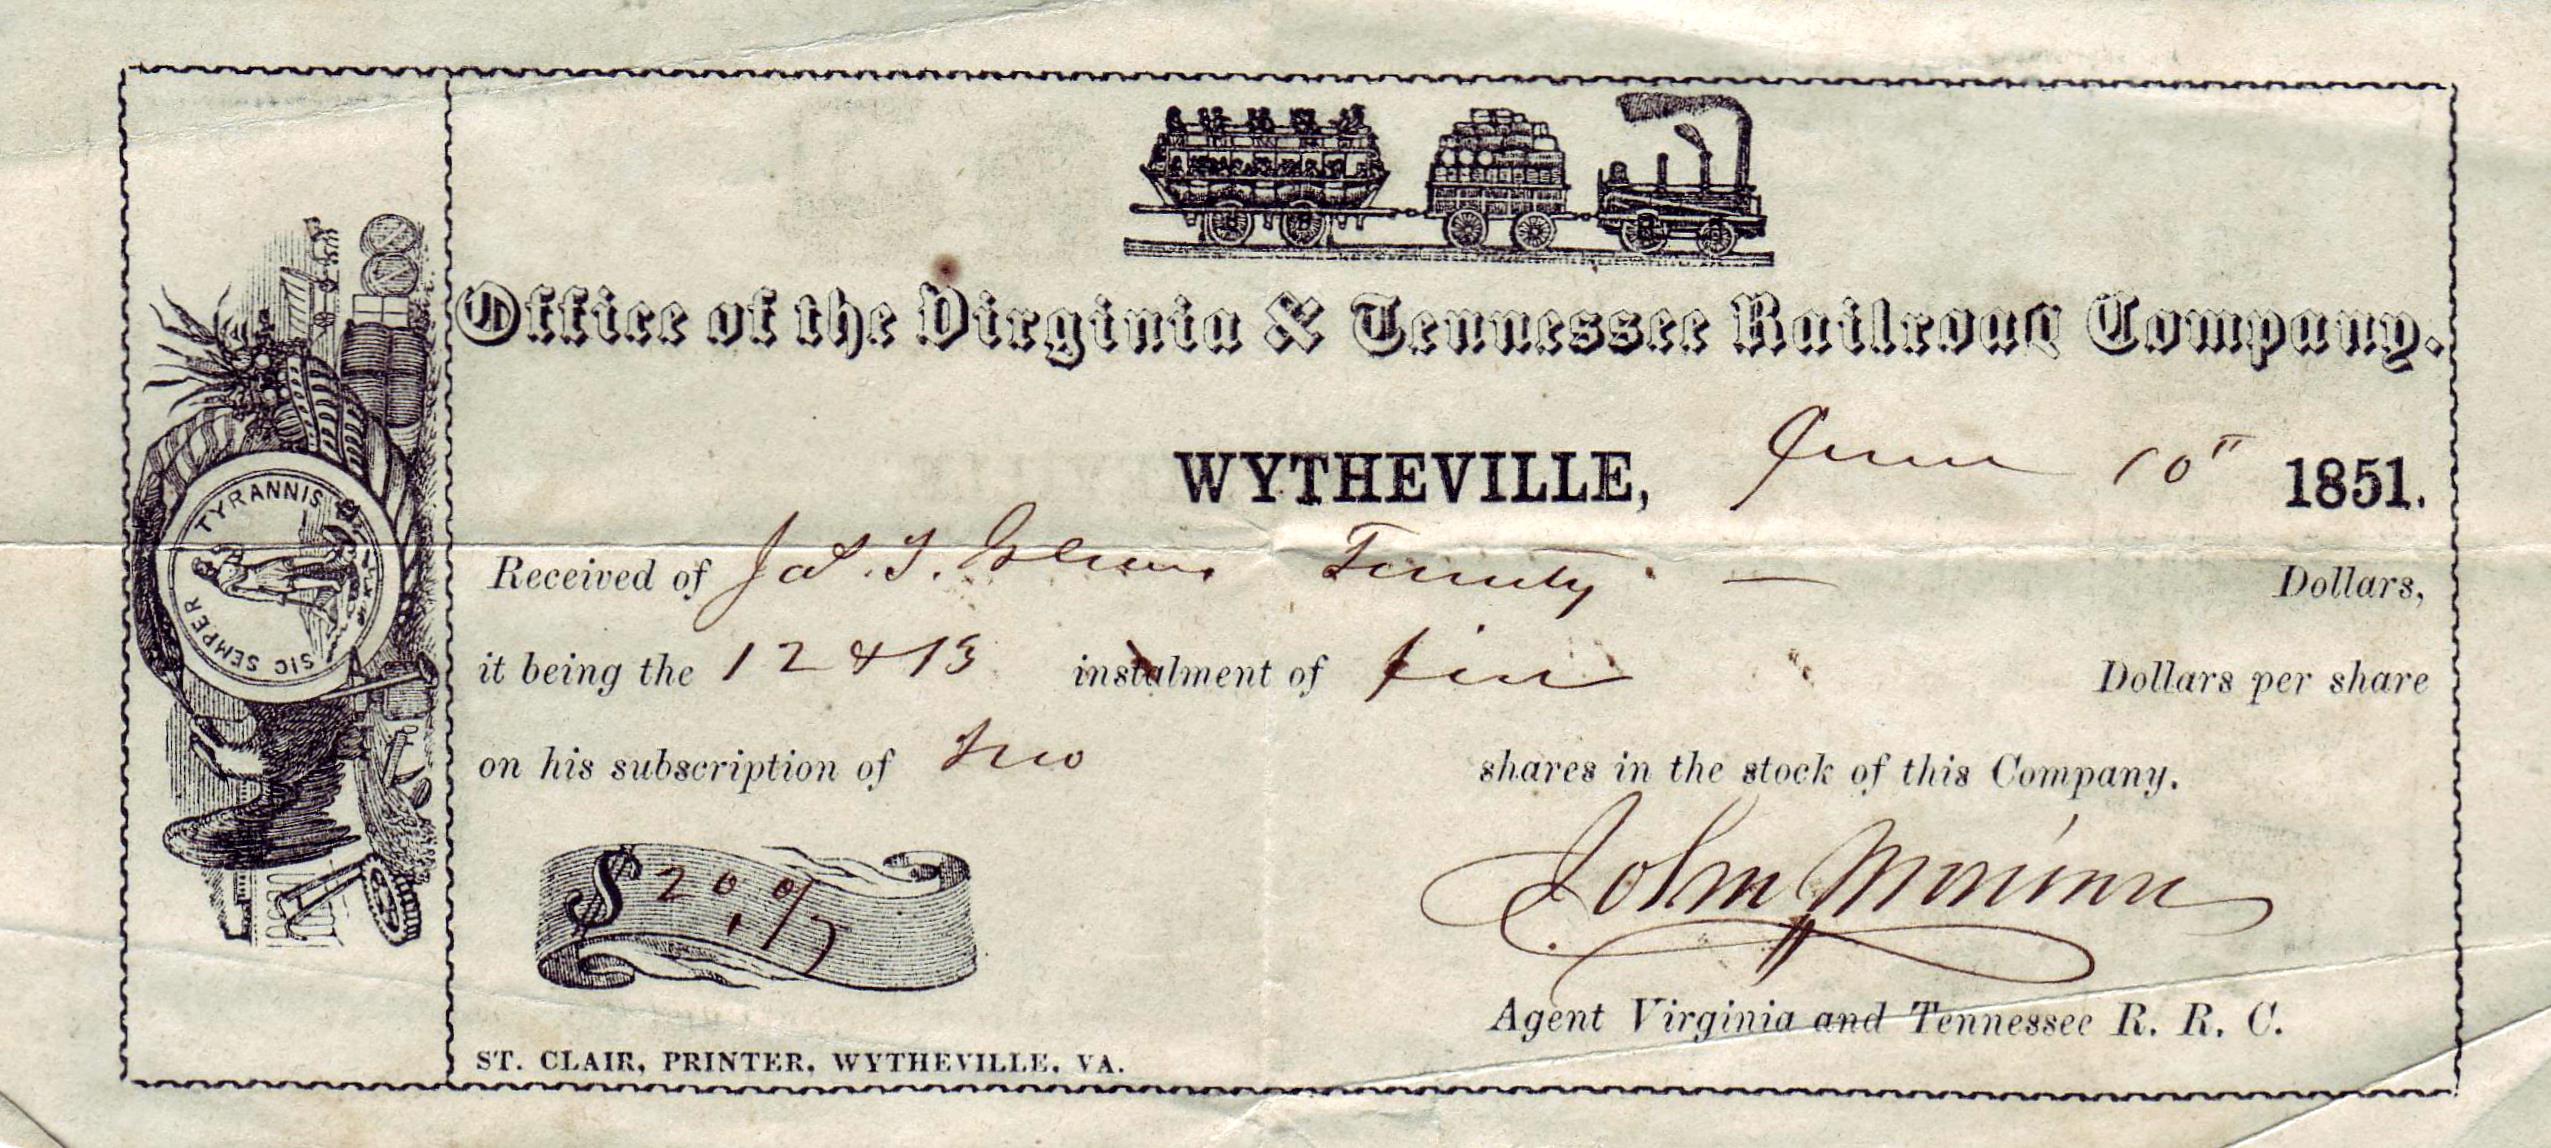 Office of the Virginia & Tennessee Railroad Company.
WYTHEVILLE, June 10" 1851.
Received of Jas. T. Twenty — Dollars,
it being the 12 & 13 instalment of five Dollars per share
on his subscription of two shares in the stock of this Company.
$20 0/
John
Agent Virginia and Tennessee R. R. C.
ST. CLAIR, PRINTER, WYTHEVILLE, VA.
SIC SEMPER TYRANNIS